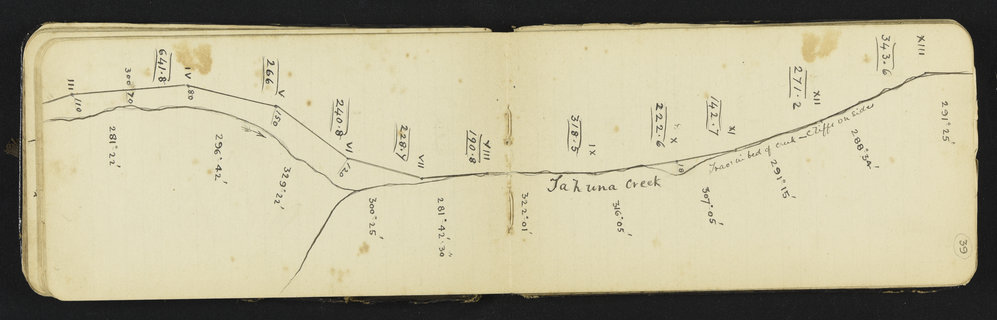 III
110
300
70
641.8
IV
80
266
V
150
240.8
VI
120
228.7
VII
190.8
VIII
318.5
IX
222.6
X
18
142.7
XI
271.2
XII
343.6
XIII
Tahuna Creek
Trav: in bed of creek - Cliffs on sides
281° 22'
296° 42'
329° 22'
300° 25'
281° 42' 30"
322° 01'
316° 05'
307° 05'
291° 15'
288° 34'
291° 25'
39